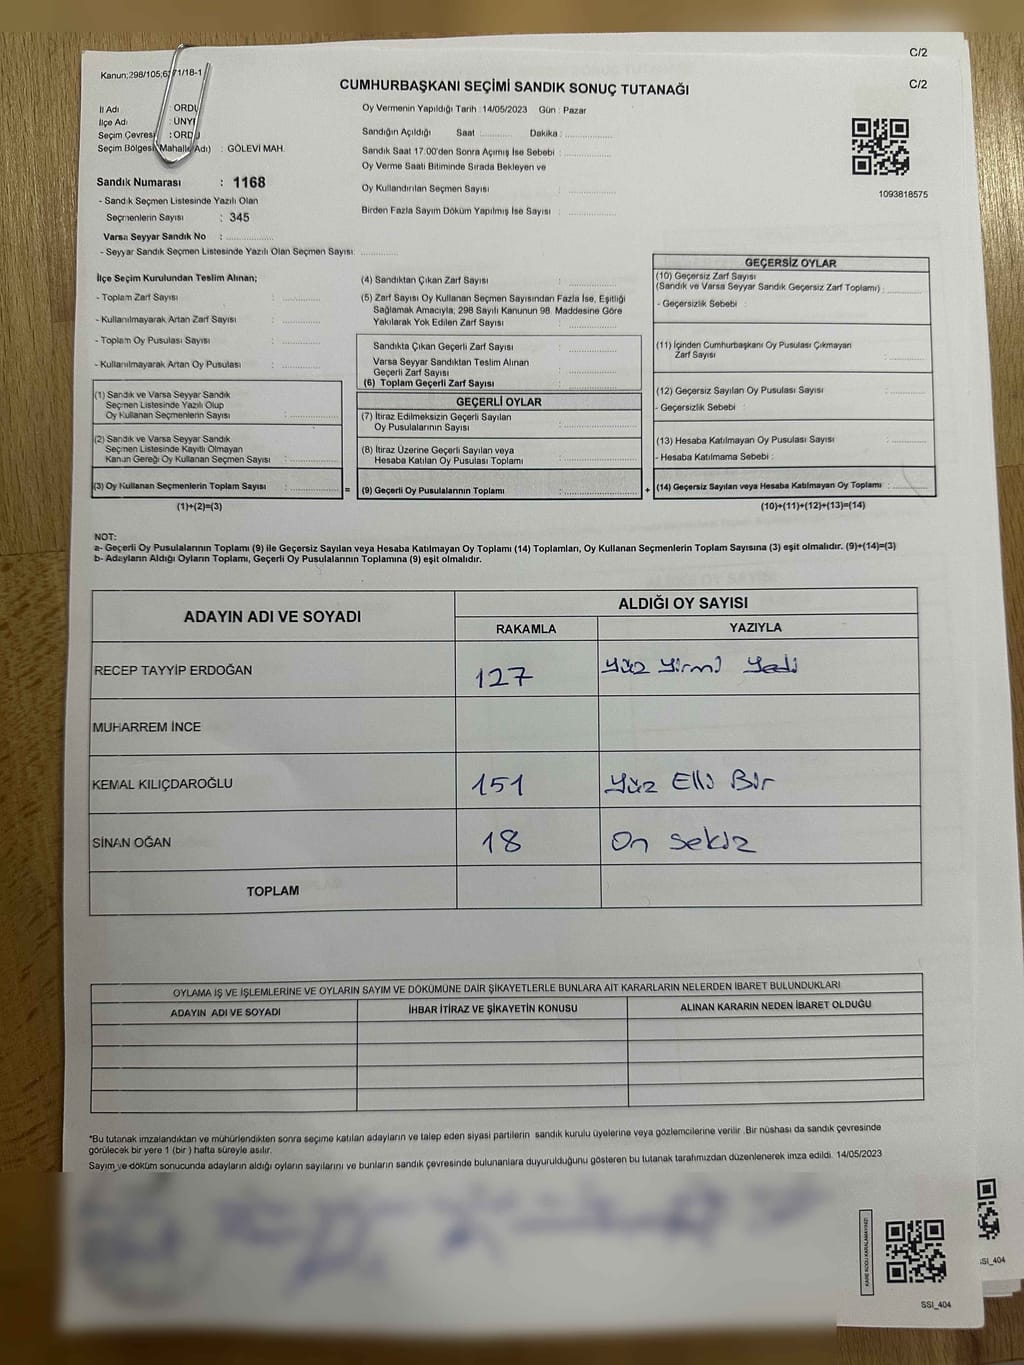 C/2
Kanun;298/105;6271/18-1
CUMHURBAŞKANI SEÇİMİ SANDIK SONUÇ TUTANAĞI
C/2
İl Adı : ORDU
İlçe Adı : ÜNYE
Seçim Çevresi : ORDU
Seçim Bölgesi (Mahalle Adı) : GÖLEVİ MAH.
Oy Vermenin Yapıldığı Tarih : 14/05/2023 Gün : Pazar
Sandığın Açıldığı Saat ............ Dakika : ................
Sandık Saat 17:00'den Sonra Açımış İse Sebebi : ................
Oy Verme Saati Bitiminde Sırada Bekleyen ve
Oy Kullandırılan Seçmen Sayısı : ................
Birden Fazla Sayım Döküm Yapılmış İse Sayısı : ................
1093818575
Sandık Numarası : 1168
- Sandık Seçmen Listesinde Yazılı Olan
Seçmenlerin Sayısı : 345
Varsa Seyyar Sandık No : ................
- Seyyar Sandık Seçmen Listesinde Yazılı Olan Seçmen Sayısı: ............
İlçe Seçim Kurulundan Teslim Alınan;
- Toplam Zarf Sayısı : ............
- Kullanılmayarak Artan Zarf Sayısı : ............
- Toplam Oy Pusulası Sayısı : ............
- Kullanılmayarak Artan Oy Pusulası : ............
(1) Sandık ve Varsa Seyyar Sandık
Seçmen Listesinde Yazılı Olup
Oy Kullanan Seçmenlerin Sayısı : ................
(2) Sandık ve Varsa Seyyar Sandık
Seçmen Listesinde Kayıtlı Olmayan
Kanun Gereği Oy Kullanan Seçmen Sayısı : ................
(3) Oy Kullanan Seçmenlerin Toplam Sayısı : ................ =
(1)+(2)=(3)
(4) Sandıktan Çıkan Zarf Sayısı : ................
(5) Zarf Sayısı Oy Kullanan Seçmen Sayısından Fazla İse, Eşitliği
Sağlamak Amacıyla; 298 Sayılı Kanunun 98. Maddesine Göre
Yakılarak Yok Edilen Zarf Sayısı : ................
Sandıkta Çıkan Geçerli Zarf Sayısı : ................
Varsa Seyyar Sandıktan Teslim Alınan
Geçerli Zarf Sayısı : ................
(6) Toplam Geçerli Zarf Sayısı : ................
GEÇERLİ OYLAR
(7) İtiraz Edilmeksizin Geçerli Sayılan
Oy Pusulalarının Sayısı : ................
(8) İtiraz Üzerine Geçerli Sayılan veya
Hesaba Katılan Oy Pusulası Toplamı : ................
(9) Geçerli Oy Pusulalarının Toplamı : ................ +
GEÇERSİZ OYLAR
(10) Geçersiz Zarf Sayısı
(Sandık ve Varsa Seyyar Sandık Geçersiz Zarf Toplamı) : ............
- Geçersizlik Sebebi :
(11) İçinden Cumhurbaşkanı Oy Pusulası Çıkmayan
Zarf Sayısı : ............
(12) Geçersiz Sayılan Oy Pusulası Sayısı : ............
- Geçersizlik Sebebi :
(13) Hesaba Katılmayan Oy Pusulası Sayısı : ............
- Hesaba Katılmama Sebebi :
(14) Geçersiz Sayılan veya Hesaba Katılmayan Oy Toplamı : ............
(10)+(11)+(12)+(13)=(14)
NOT:
a- Geçerli Oy Pusulalarının Toplamı (9) ile Geçersiz Sayılan veya Hesaba Katılmayan Oy Toplamı (14) Toplamları, Oy Kullanan Seçmenlerin Toplam Sayısına (3) eşit olmalıdır. (9)+(14)=(3)
b- Adayların Aldığı Oyların Toplamı, Geçerli Oy Pusulalarının Toplamına (9) eşit olmalıdır.
ADAYIN ADI VE SOYADI ALDIĞI OY SAYISI
RAKAMLA YAZIYLA
RECEP TAYYİP ERDOĞAN 127 Yüz Yirmi Yedi
MUHARREM İNCE
KEMAL KILIÇDAROĞLU 151 Yüz Elli Bir
SİNAN OĞAN 18 On sekiz
TOPLAM
OYLAMA İŞ VE İŞLEMLERİNE VE OYLARIN SAYIM VE DÖKÜMÜNE DAİR ŞİKAYETLERLE BUNLARA AİT KARARLARIN NELERDEN İBARET BULUNDUKLARI
ADAYIN ADI VE SOYADI İHBAR İTİRAZ VE ŞİKAYETİN KONUSU ALINAN KARARIN NEDEN İBARET OLDUĞU
*Bu tutanak imzalandıktan ve mühürlendikten sonra seçime katılan adayların ve talep eden siyasi partilerin sandık kurulu üyelerine veya gözlemcilerine verilir .Bir nüshası da sandık çevresinde
görülecek bir yere 1 (bir ) hafta süreyle asılır.
Sayım ve döküm sonucunda adayların aldığı oyların sayılarını ve bunların sandık çevresinde bulunanlara duyurulduğunu gösteren bu tutanak tarafımızdan düzenlenerek imza edildi. 14/05/2023
KARE KODU KARALAMAYINIZ!
SSI_404
SSI_404